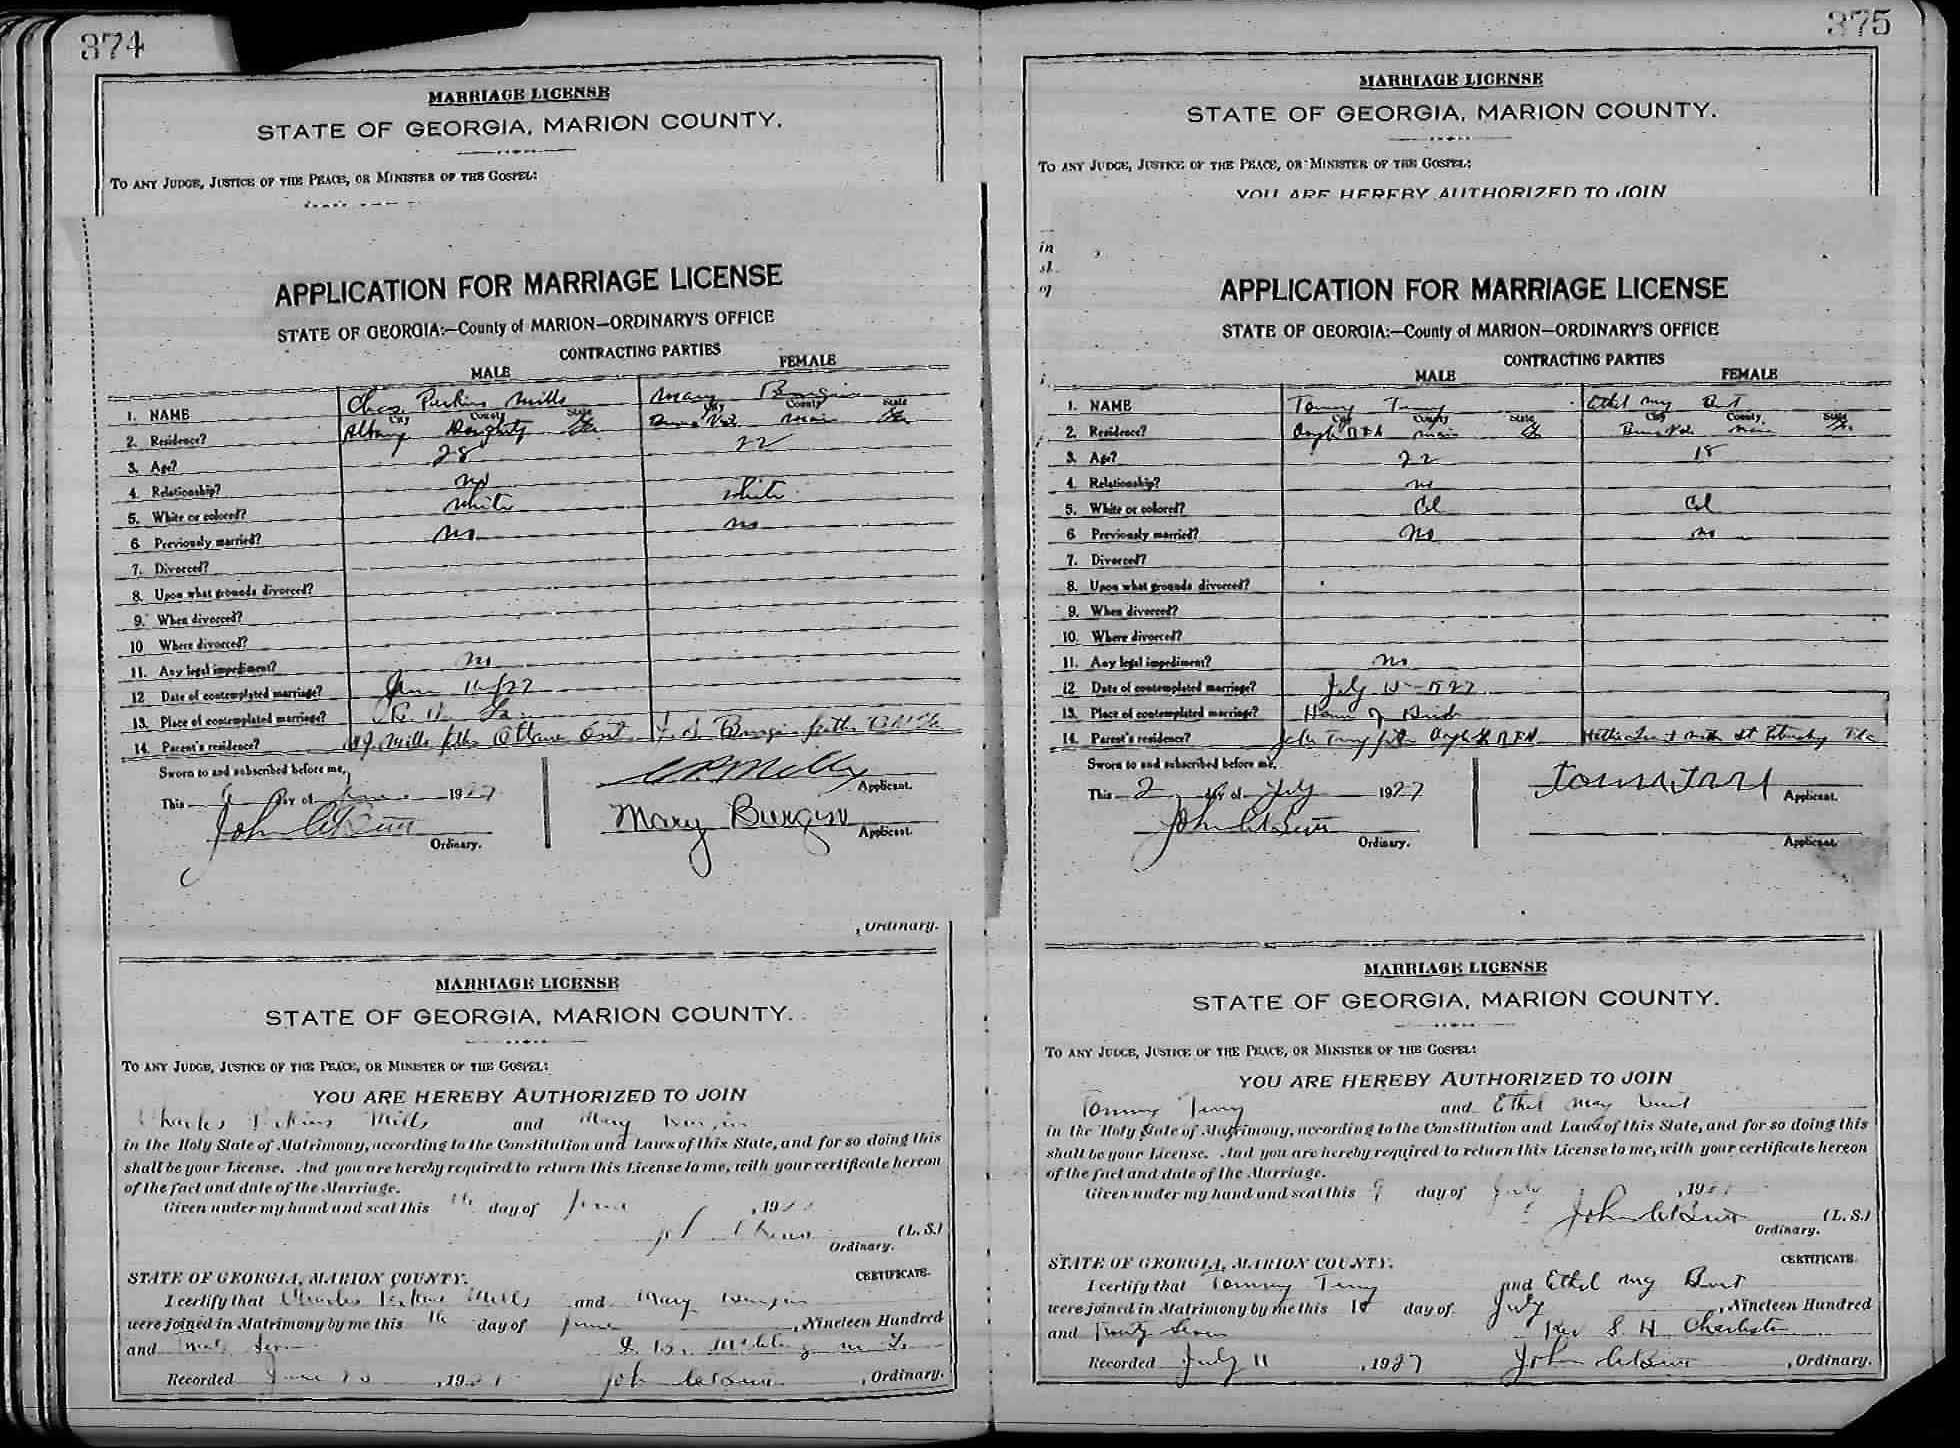 374
MARRIAGE LICENSE
STATE OF GEORGIA, MARION COUNTY.
TO ANY JUDGE, JUSTICE OF THE PEACE, OR MINISTER OF THE GOSPEL:
APPLICATION FOR MARRIAGE LICENSE
STATE OF GEORGIA:—County of MARION—ORDINARY'S OFFICE
CONTRACTING PARTIES
MALE FEMALE
1. NAME Chas. Perkins Mills Mary Burgin
City County State City County State
2. Residence? Albany Dougherty Ga Buena Vista Marion Ga
3. Age? 28 22
4. Relationship? no
5. White or colored? white white
6. Previously married? no no
7. Divorced?
8. Upon what grounds divorced?
9. When divorced?
10 Where divorced?
11. Any legal impediment? no
12 Date of contemplated marriage? June
13. Place of contemplated marriage? Ga.
14. Parent's residence? Mills father Ottawa Ont. Burgin father
Sworn to and subscribed before me,
This day of June 1927
C P Mills Applicant.
Ordinary.
Mary Burgin Applicant.
, Ordinary.
MARRIAGE LICENSE
STATE OF GEORGIA, MARION COUNTY.
TO ANY JUDGE, JUSTICE OF THE PEACE, OR MINISTER OF THE GOSPEL:
YOU ARE HEREBY AUTHORIZED TO JOIN
Charles Perkins Mills and Mary Burgin
in the Holy State of Matrimony, according to the Constitution and Laws of this State, and for so doing this
shall be your License. And you are hereby required to return this License to me, with your certificate hereon
of the fact and date of the Marriage.
Given under my hand and seal this day of June , 19
(L. S.)
Ordinary.
STATE OF GEORGIA, MARION COUNTY. CERTIFICATE.
I certify that Charles Perkins Mills and Mary Burgin
were joined in Matrimony by me this day of June , Nineteen Hundred
and
Recorded June , 19 John , Ordinary.
375
MARRIAGE LICENSE
STATE OF GEORGIA, MARION COUNTY.
TO ANY JUDGE, JUSTICE OF THE PEACE, OR MINISTER OF THE GOSPEL:
YOU ARE HEREBY AUTHORIZED TO JOIN
in
sh
of
APPLICATION FOR MARRIAGE LICENSE
STATE OF GEORGIA:—County of MARION—ORDINARY'S OFFICE
CONTRACTING PARTIES
MALE FEMALE
1. NAME Tommy Terry Ethel May Burt
City County State City County State
2. Residence? Marion Ga Buena Vista Marion Ga
3. Age? 22 18
4. Relationship? no
5. White or colored? Col Col
6 Previously married? No no
7. Divorced?
8. Upon what grounds divorced?
9. When divorced?
10. Where divorced?
11. Any legal impediment? no
12 Date of contemplated marriage? July 1927
13. Place of contemplated marriage? Home of Bride
14. Parent's residence? Terry father mother St Petersburg Fla
Sworn to and subscribed before me,
This 2 day of July 1927
Applicant.
Ordinary.
Applicant.
MARRIAGE LICENSE
STATE OF GEORGIA, MARION COUNTY.
TO ANY JUDGE, JUSTICE OF THE PEACE, OR MINISTER OF THE GOSPEL:
YOU ARE HEREBY AUTHORIZED TO JOIN
Tommy Terry and Ethel May Burt
in the Holy State of Matrimony, according to the Constitution and Laws of this State, and for so doing this
shall be your License. And you are hereby required to return this License to me, with your certificate hereon
of the fact and date of the Marriage.
Given under my hand and seal this 9 day of July , 19
John (L. S.)
Ordinary.
STATE OF GEORGIA, MARION COUNTY. CERTIFICATE.
I certify that Tommy Terry and Ethel May Burt
were joined in Matrimony by me this 10 day of July , Nineteen Hundred
and Twenty Seven Rev S. H.
Recorded July 11 , 1927 John , Ordinary.